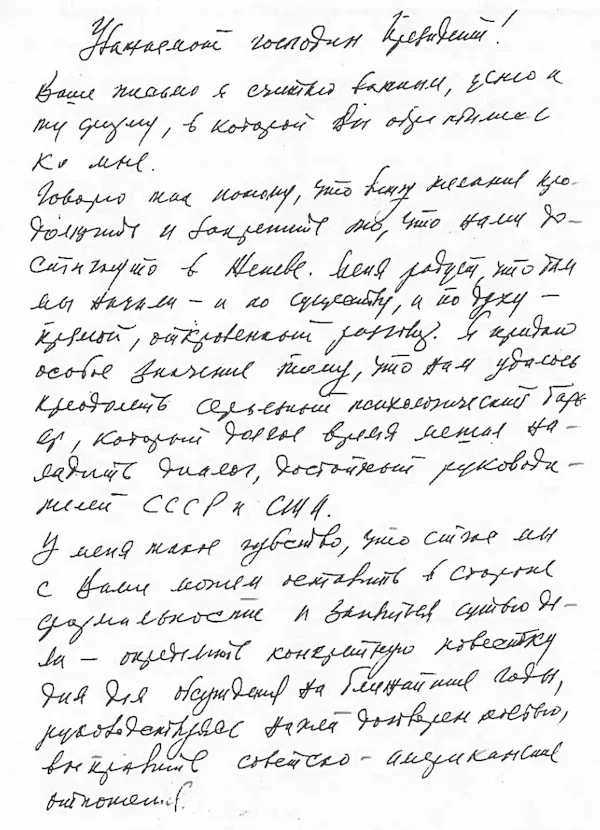 Уважаемый господин Президент!
Ваше письмо я считаю важным, ценю и
ту форму, в которой Вы обратились
ко мне.
Говорю так потому, что вижу желание про-
должить и закрепить то, что нами до-
стигнуто в Женеве. Меня радует, что там
мы начали – и по существу, и по духу –
прямой, откровенный разговор. Я придаю
особое значение тому, что нам удалось
преодолеть серьезный психологический барь-
ер, который долгое время мешал на-
ладить диалог, достойный руководи-
телей СССР и США.
У меня такое чувство, что сейчас мы
с Вами можем оставить в стороне
формальности и заняться сутью де-
ла – определить конкретную повестку
дня для обсуждения на ближайшие годы,
руководствуясь нашей договоренностью,
выправить советско-американские
отношения.